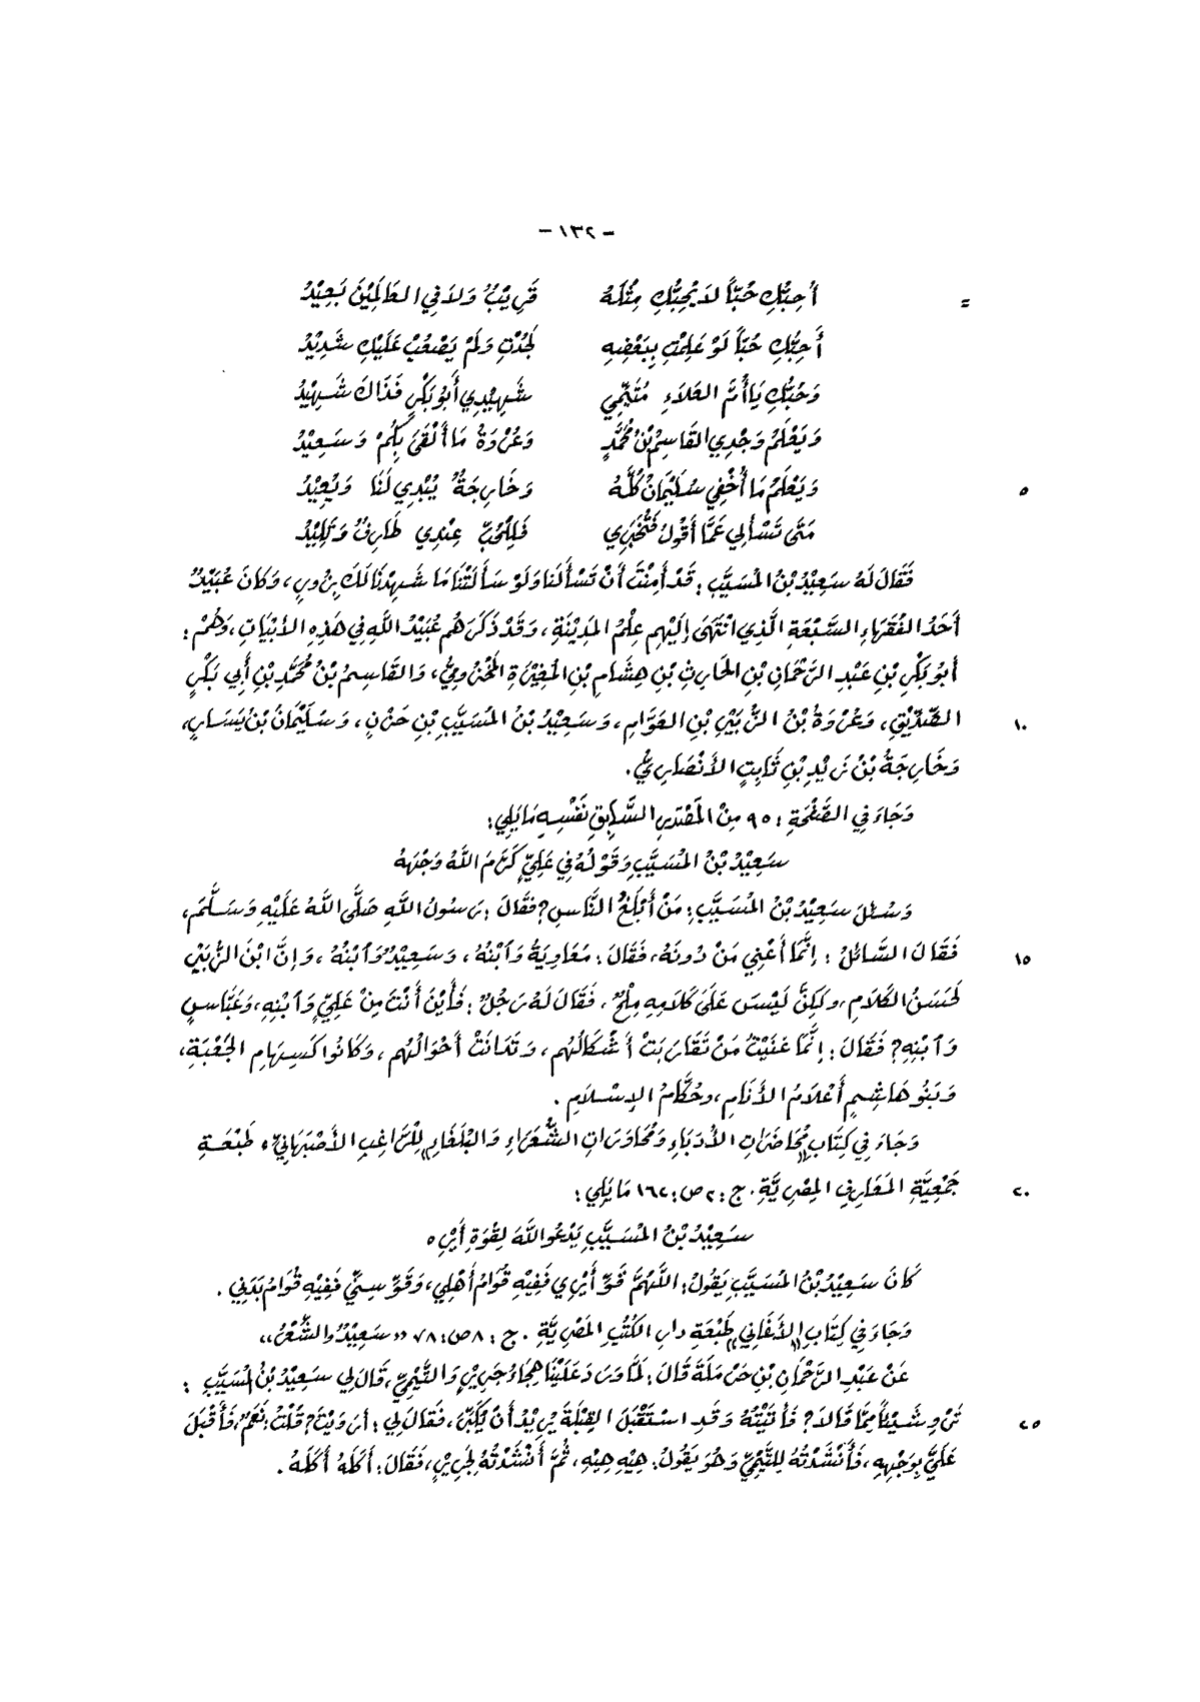 - ١٣٢ -
= أُحِبُّكِ حُبّاً لَا يُحِبُّكِ مِثْلَهُ قَرِيْبٌ وَلَا فِي العَالَمِيْنَ بَعِيْدُ
أُحِبُّكِ حُبّاً لَوْ عَلِمْتِ بِبَعْضِهِ لَجُدْتِ وَلَمْ يَصْعُبْ عَلَيْكِ شَدِيْدُ
وَحُبُّكِ يَا أُمَّ العَلَاءِ مُتَيِّمِي شَهِيْدِي أَبُو بَكْرٍ فَذَاكَ شَهِيْدُ
وَيَعْلَمُ وَجْدِي القَاسِمُ بْنُ مُحَمَّدٍ وَعُرْوَةُ مَا أَلْقَى بِكُمْ وَسَعِيْدُ
٥ وَيَعْلَمُ مَا أُخْفِي سُلَيْمَانُ كُلَّهُ وَخَارِجَةٌ يُبْدِي لَنَا وَيُعِيْدُ
مَتَى تَسْأَلِي عَمَّا أَقُولُ فَتُخْبَرِي فَلِلْحُبِّ عِنْدِي طَارِفٌ وَتَلِيْدُ
فَقَالَ لَهُ سَعِيْدُ بْنُ المُسَيَّبِ: قَدْ أَمِنْتَ أَنْ تَسْأَلَنَا وَلَوْ سَأَلَتْنَا مَا شَهِدْنَا لَكَ بِزُورٍ، وَكَانَ عُبَيْدُ
أَحَدُ الفُقَهَاءِ السَّبْعَةِ الَّذِي انْتَهَى إِلَيْهِم عِلْمُ المَدِيْنَةِ، وَقَدْ ذَكَرَهُم عُبَيْدُ اللَّهِ فِي هَذِهِ الأَبْيَاتِ، وَهُمْ:
أَبُو بَكْرِ بْنِ عَبْدِ الرَّحْمَانِ بْنِ الحَارِثِ بْنِ هِشَامِ بْنِ المُغِيْرَةِ المَخْزُومِيُّ، وَالقَاسِمُ بْنُ مُحَمَّدِ بْنِ أَبِي بَكْرٍ
١٠ الصِّدِّيْقِ، وَعُرْوَةُ بْنُ الزُّبَيْرِ بْنِ العَوَّامِ، وَسَعِيْدُ بْنُ المُسَيَّبِ بْنِ حَزْنٍ، وَسُلَيْمَانُ بْنُ يَسَارٍ،
وَخَارِجَةُ بْنُ زَيْدِ بْنِ ثَابِتٍ الأَنْصَارِيُّ.
وَجَاءَ فِي الصَّفْحَةِ: ٩٥ مِنَ المَصْدَرِ السَّابِقِ نَفْسِهِ مَا يَلِي:
سَعِيْدُ بْنُ المُسَيَّبِ وَقَوْلُهُ فِي عَلِيٍّ كَرَّمَ اللَّهُ وَجْهَهُ
وَسُئِلَ سَعِيْدُ بْنُ المُسَيَّبِ: مَنْ أَبْلَغُ النَّاسِ؟ فَقَالَ: رَسُولُ اللَّهِ صَلَّى اللَّهُ عَلَيْهِ وَسَلَّمَ،
١٥ فَقَالَ السَّائِلُ: إِنَّمَا أَعْنِي مَنْ دُونَهُ، فَقَالَ: مُعَاوِيَةُ وَآبْنُهُ، وَسَعِيْدٌ وَآبْنُهُ، وَإِنَّ ابْنَ الزُّبَيْرِ
لَحَسَنُ الكَلَامِ، ولكِنْ لَيْسَ عَلَى كَلَامِهِ مِلْحٌ، فَقَالَ لَهُ رَجُلٌ: فَأَيْنَ أَنْتَ مِنْ عَلِيٍّ وَآبْنِهِ، وَعَبَّاسٍ
وَآبْنِهِ؟ فَقَالَ: إِنَّمَا عَنَيْتُ مَنْ تَقَارَبَتْ أَشْكَالُهُم، وَتَدَانَتْ أَحْوَالُهُم، وَكَانُوا كَسِهَامِ الجَعْبَةِ،
وَبَنُو هَاشِمٍ أَعْلَامُ الأَنَامِ، وحُكَّامُ الإِسْلَامِ.
وَجَاءَ فِي كِتَابِ "مُحَاضَرَاتِ الأُدَبَاءِ وَمُحَاوَرَاتِ الشُّعَرَاءِ وَالبُلَغَاءِ" لِلرَّاغِبِ الأَصْبَهَانِيِّ، طَبْعَةِ
٢٠ جَمْعِيَّةِ المَعَارِفِ المِصْرِيَّةِ. ج: ٢ ص: ١٦٢ مَا يَلِي:
سَعِيْدُ بْنُ المُسَيَّبِ يَدْعُو اللَّهَ لِقُوَةِ أَيْرِه
كَانَ سَعِيْدُ بْنُ المُسَيَّبِ يَقُولُ: اللَّهُمَّ قَوِّ أَيْرِي فَفِيْهِ قُوَامُ أَهْلِي، وَقَوِّ سِنِّي فَفِيْهِ قُوَامُ بَدَنِي.
وَجَاءَ فِي كِتَابِ "الأَغَانِي" طَبْعَةِ دارِ الكُتُبِ المَصْرِيَّةِ. ج: ٨ ص: ٧٨ "سَعِيْدٌ والشِّعْرُ"
عَنْ عَبْدِ الرَّحْمَانِ بْنِ حَرْمَلَةَ قَالَ: لَمَّا وَرَدَ عَلَيْنَا هِجَاءُ جَرِيْرٍ وَالتَّيْمِيِّ، قَالَ لِي سَعِيْدُ بْنُ المُسَيَّبِ:
٢٥ تَرْوِ شَيْئاً مِمَّا قَالَا؟ فَأَتَيْتُهُ وَقَدِ اسْتَقْبَلَ القِبْلَةَ يُرِيْدُ أَنْ يُكَبِّرَ، فَقَالَ لِي: أَرَوَيْتَ؟ قُلْتُ: نَعَمْ، فَأَقْبَلَ
عَلَيَّ بِوَجْهِهِ، فَأَنْشَدْتُهُ لِلتَّيْمِيِّ وَهُوَ يَقُولُ: هِيْهِ هِيْهِ، ثُمَّ أَنْشَدْتُهُ لِجَرِيْرٍ، فَقَالَ: أَكَلَهُ أَكَلَهُ.